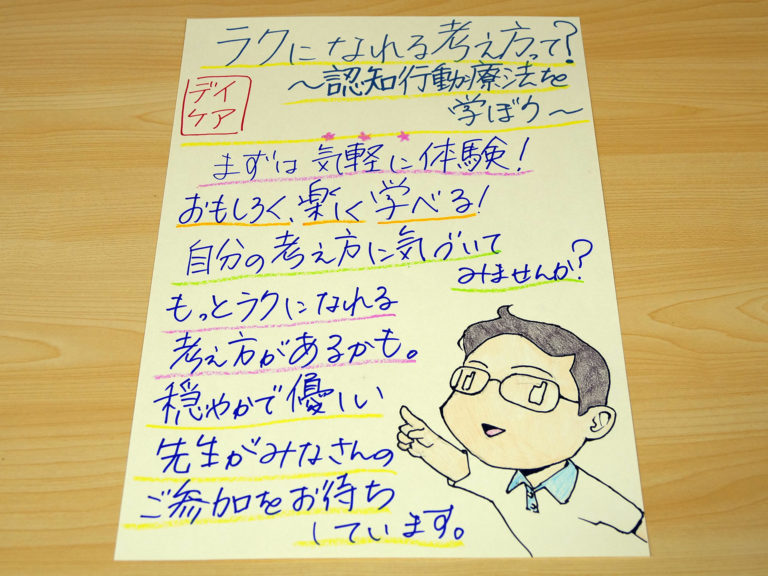 ラクになれる考え方って?
～認知行動療法を
学ぼう～
デイ
ケア
まずは気軽に体験!
おもしろく、楽しく学べる!
自分の考え方に気づいて
みませんか?
もっとラクになれる
考え方があるかも。
穏やかで優しい
先生がみなさんの
ご参加をお待ち
しています。